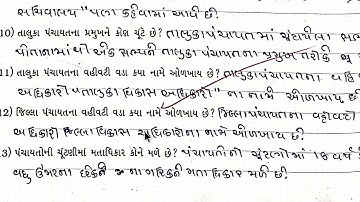 સચિવાલય "પણ કહેવામાં આવે છે.
10) તાલુકા પંચાયતના પ્રમુખને કોણ ચૂંટે છે? તાલુકા પંચાયતમાં ચૂંટાયેલા સભ્
પોતાનામાંથી એક સભ્યની તાલુકા પંચાયતના પ્રમુખ તરીકે
11) તાલુકા પંચાયતના વહીવટી વડા ક્યા નામે ઓળખાય છે? તાલુકા પંચાયતના વહિ
અધિકારી "તાલુકા વિકાસ અધિકારી" ના નામે ઓળખાય છે.
12) જિલ્લા પંચાયતના વહીવટી વડા ક્યા નામે ઓળખાય છે? જિલ્લા પંચાયતના વહીવટી
અધિકારી જિલ્લા વિકાસ અધિકારીના નામે ઓળખાય છે.
3) પંચાયતોની ચૂંટણીમાં મતાધિકાર કોને મળે છે? પંચાયતોની ચૂંટણીમાં 18 વર્ષ
વધુ ઉંમરના દરેક નાગરિકને મતાધિકાર મળે છે.